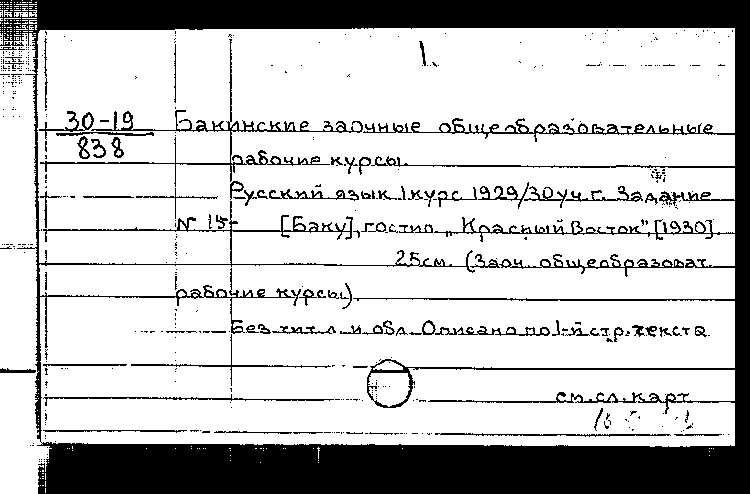 1.
30-19 Бакинские заочные общеобразовательные
838
рабочие курсы.
Русский язык 1 курс 1929/30 уч г. Задание
№ 15- [Баку], гостип. „Красный Восток", [1930].
25см. (Заоч. общеобразоват.
рабочие курсы).
Без тит. л. и обл. Описано по 1-й стр. текста
см. сл. карт